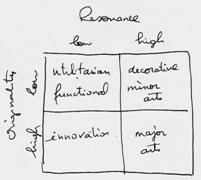 Resonance
low high
Originality
low
utilitarian
functional
decorative
minor
arts
high
innovation
major
arts